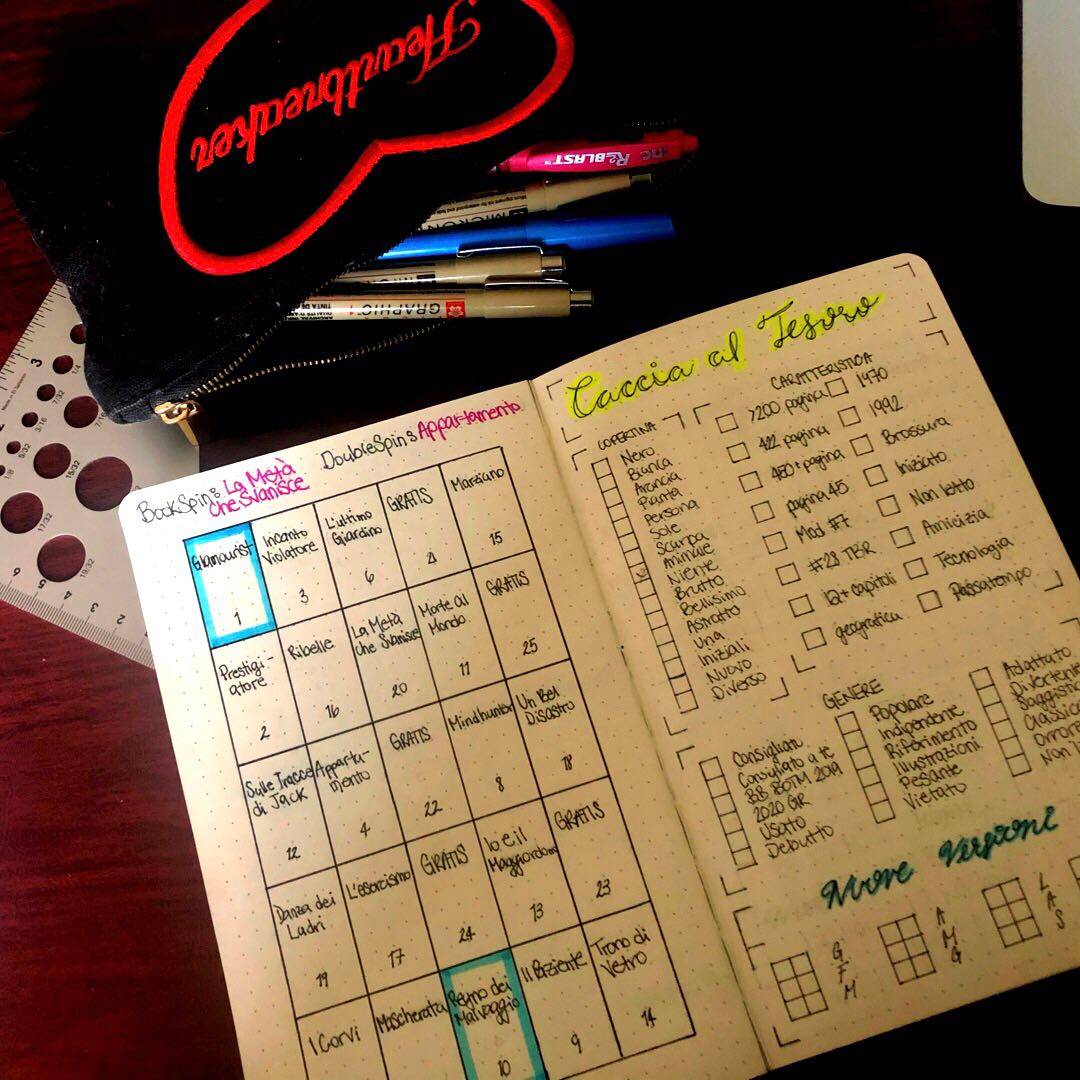 Heartbreaker
inc. R2BLAST™
MICRON
GRAPHIC 1
BookSpin: La Metà
che Svanisce
DoubleSpin: Appartamento
Glamourist
1
Incanto
Violatore
3
L'ultimo
Giardino
6
GRATIS
21
Marziano
15
Prestigi-
atore
2
Ribelle
16
La Metà
che Svanisce
20
Morte al
Mondo
11
GRATIS
25
Sulle Tracce
di Jack
12
Apparta-
mento
4
GRATIS
22
Mindhunter
8
Un Bel
Disastro
18
Danza dei
Ladri
19
L'esorcismo
17
GRATIS
24
Io e il
Maggiordomo
13
GRATIS
23
I Corvi
Mascherata
Regno dei
Malvaggio
10
Il Paziente
9
Trono di
Vetro
14
Caccia al Tesoro
COPERTINA
Nero
Bianca
Arancia
Pianta
Persona
Sole
Scarpa
Animale
Niente
Brutto
Bellisimo
Astratto
Una
Iniziali
Nuovo
Diverso
CARATTERISTICA
>200 pagina
422 pagina
450+ pagina
pagina 45
Mod #7
#28 TBR
12+ capitoli
geografica
1970
1992
Brossura
Iniziato
Non letto
Amicizia
Tecnologia
Passatempo
GENERE
Consigliato
Consigliato a te
BB BOTM 2019
2020 GR
Usato
Debutto
Popolare
Indipendente
Riferimento
Illustrazioni
Pesante
Vietato
Adattato
Nuove Versioni
G
F
M
A
M
G
L
A
S